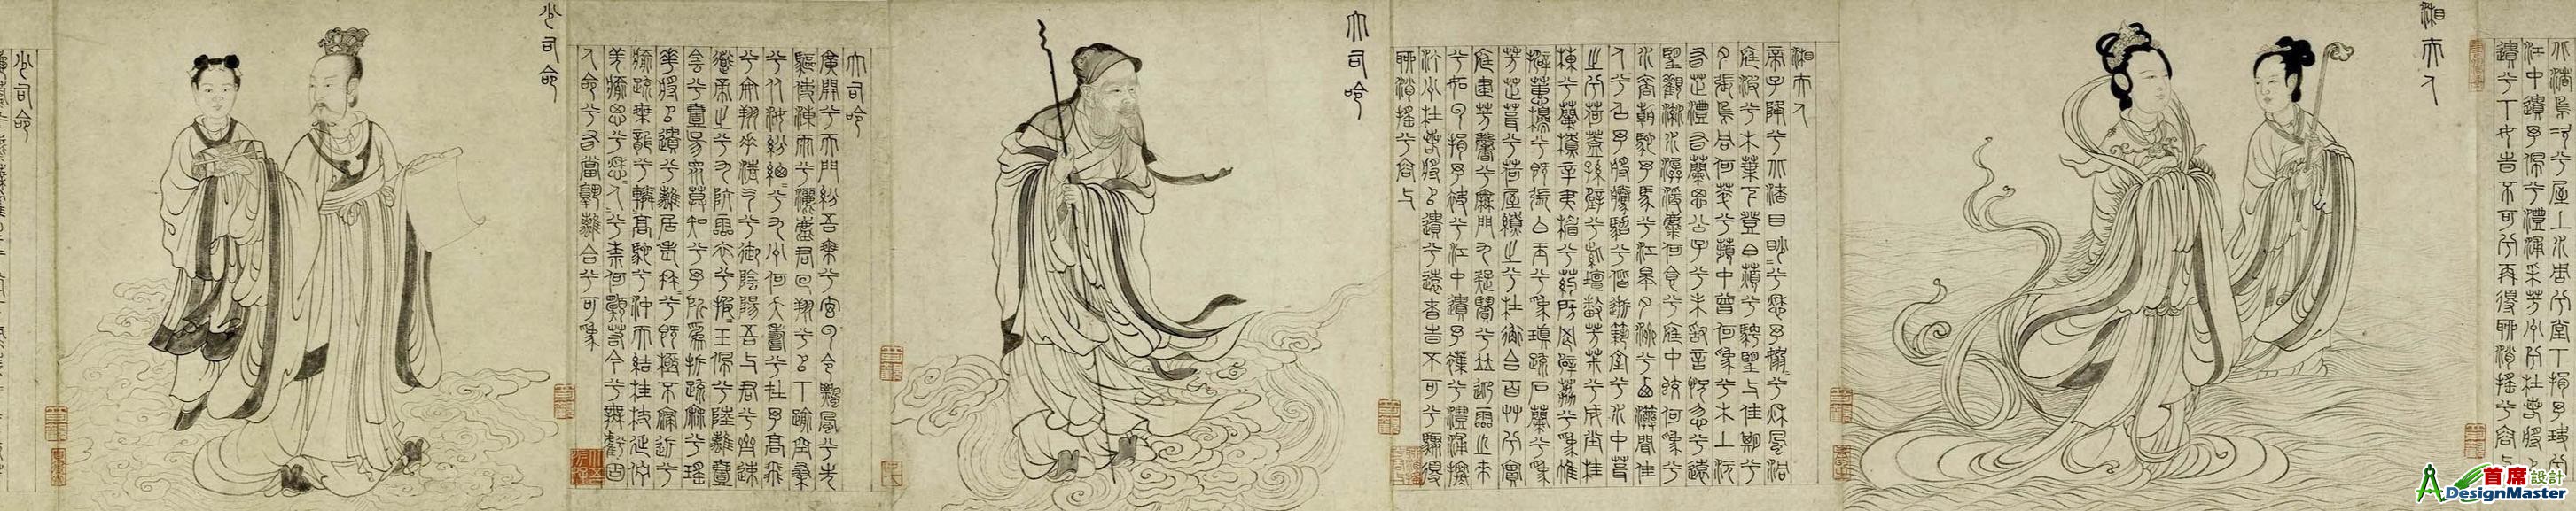 北渚鳥次兮屋上水周兮堂下捐余玦兮
江中遺余佩兮澧浦采芳州兮杜若將以
遺兮下女時不可兮再得聊逍遙兮容與
湘夫人
湘夫人
帝子降兮北渚目眇兮愁予嫋兮秋風洞
庭波兮木葉下登白薠兮騁望與佳期兮
夕張鳥何萃兮蘋中罾何為兮木上沅
有芷澧有蘭思公子兮未敢言恍忽兮遠
望觀流水潺湲麋何食兮庭中蛟何為兮
水裔朝馳余馬兮江皋夕濟兮西澨聞佳
人兮召予將騰駕兮偕逝築室兮水中葺
之兮荷蓋蓀壁兮紫壇播芳茉兮成堂桂
棟兮蘭橑辛夷楣兮葯房罔薜荔兮為帷
擗蕙櫋兮既張白玉兮為瑱疏石蘭兮為
芳芷葺兮荷屋繚之兮杜衡合百草兮實
庭建芳馨兮廡門九疑繽兮並迎靈之來
兮如雲捐余袂兮江中遺余褋兮澧浦搴
汀洲杜若將以遺兮遠者時不可兮驟得
聊逍遙兮容與
大司命
大司命
廣開兮天門紛吾乘兮玄雲令飄風兮先
驅使涷雨兮灑塵君回翔兮以下踰空桑
兮從女紛總兮九州何夭壽兮在予高飛
兮安翔乘清氣兮御陰陽吾與君兮齊速
導帝之兮九阬靈衣兮被玉佩兮陸離壹
陰兮壹陽眾莫知兮予所為折疏麻兮瑤
華將以遺兮離居老冉兮既極不寖近兮
愈疏乘龍兮轔高駝兮沖天結桂枝延佇
羌愈思兮愁人兮奈何願若今兮無虧固
人命兮有當孰離合兮可為
少司命
少司命
首席設計
DesignMaster